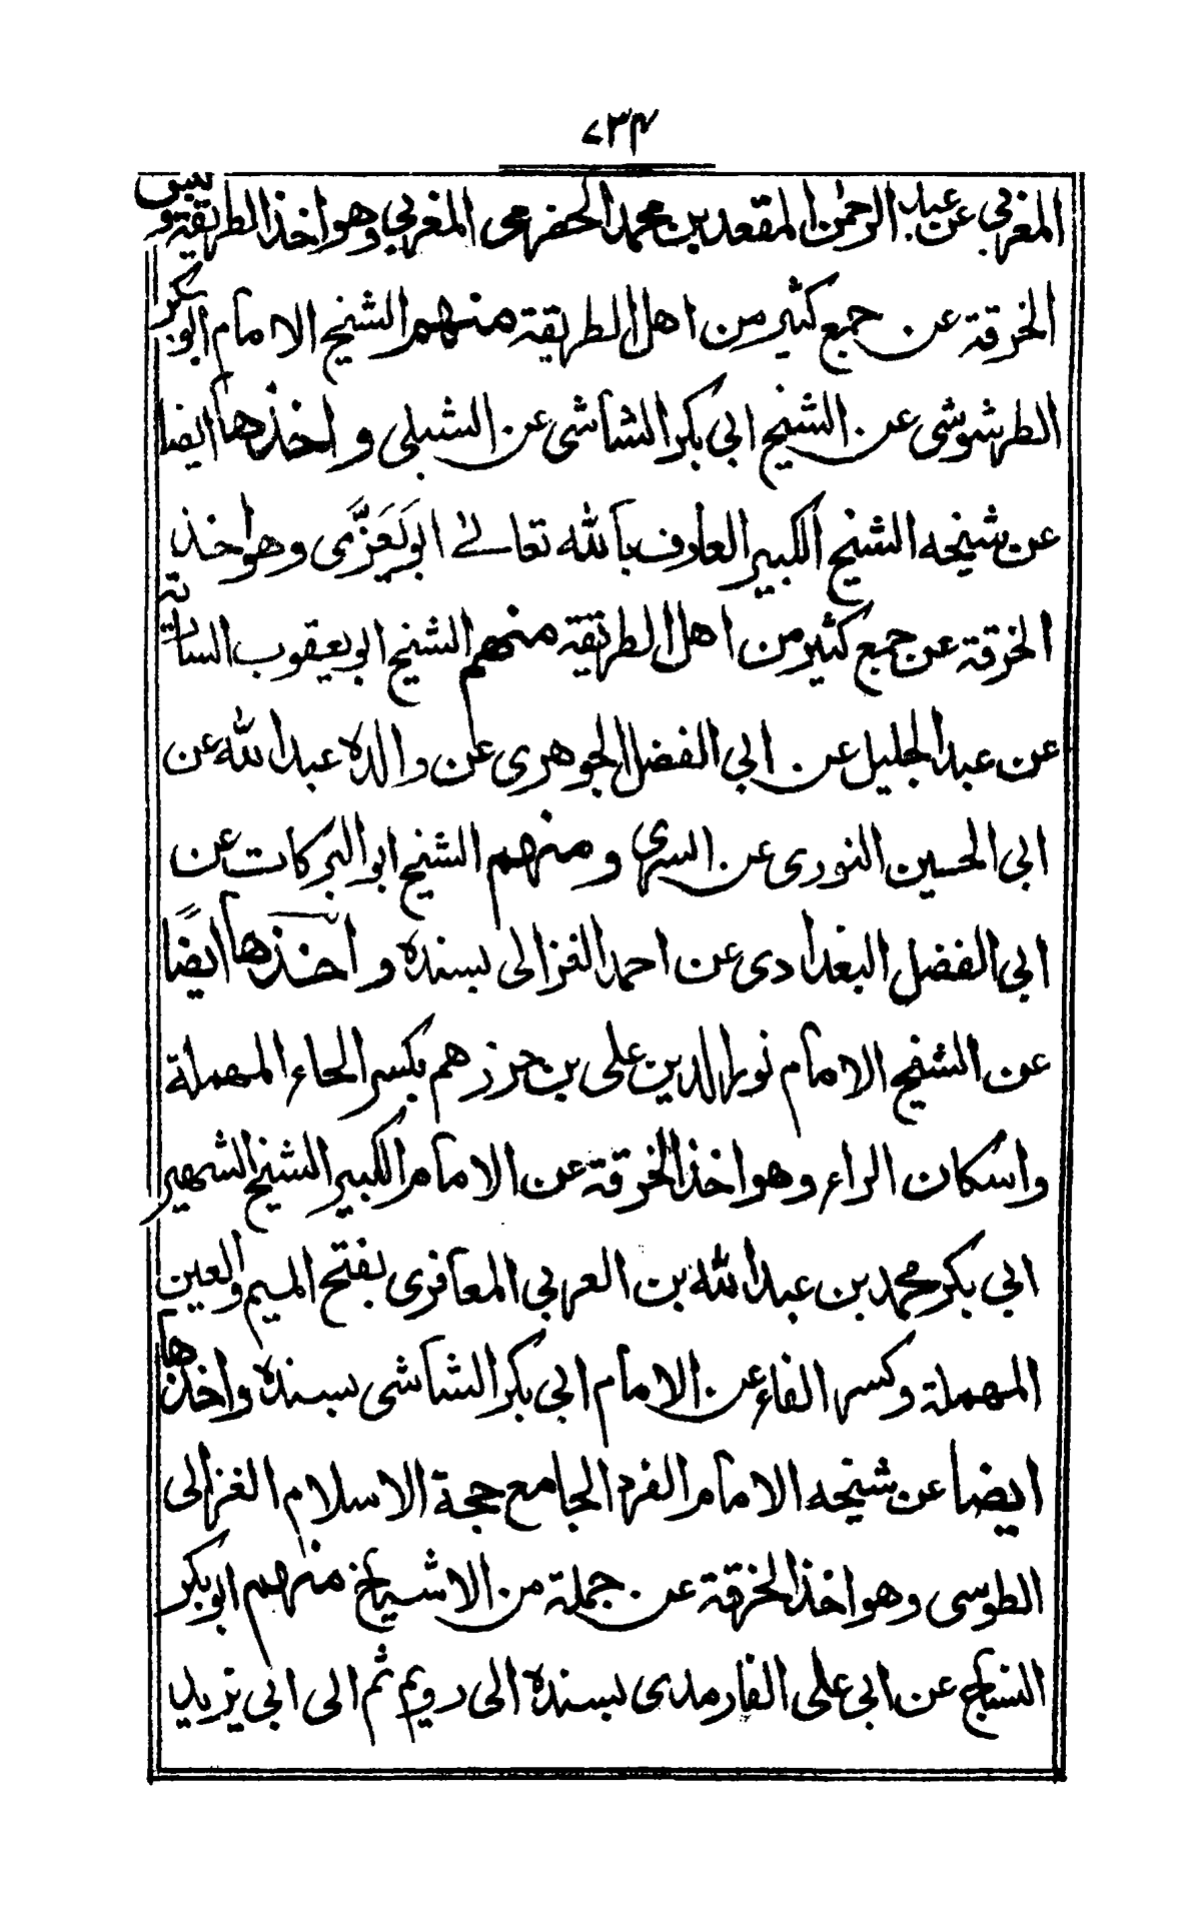 ٧٣٤
المغربي عن عبد الرحمن المقعد بن محمد الحضرمي المغربي وهو اخذ الطريقة ولبس
الخرقة عن جمع كثير من اهل الطريقة منهم الشيخ الامام ابو بكر
الطرشوشي عن الشيخ ابي بكر الشاشي عن الشبلي و اخذها ايضا
عن شيخه الشيخ الكبير العارف بالله تعالى ابو يَعَزَّى وهو اخذ
الخرقة عن جمع كثير من اهل الطريقة منهم الشيخ ابو يعقوب السارية
عن عبد الجليل عن ابي الفضل الجوهري عن والده عبد الله عن
ابي الحسين النوري عن السري و منهم الشيخ ابو البركات عن
ابي الفضل البغدادي عن احمد الغزالي بسنده و اخذها ايضًا
عن الشيخ الامام نور الدين علي بن حرزهم بكسر الحاء المهملة
واسكان الراء وهو اخذ الخرقة عن الامام الكبير الشيخ الشهير
ابي بكر محمد بن عبد الله بن العربي المعافري بفتح الميم والعين
المهملة وكسر الفاء عن الامام ابي بكر الشاشي بسنده واخذها
ايضا عن شيخه الامام الفرد الجامع حجة الاسلام الغزالي
الطوسي وهو اخذ الخرقة عن جملة من الاشياخ منهم ابو بكر
النساج عن ابي علي الفارمدي بسنده الى رويم ثم الى ابي يزيد